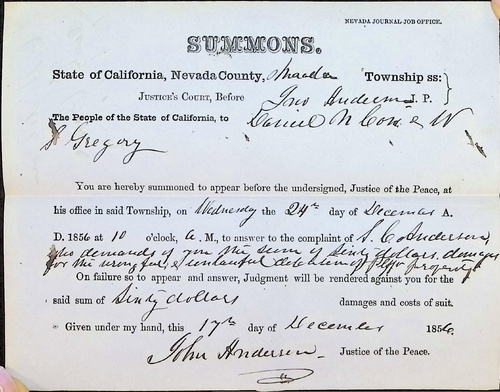 NEVADA JOURNAL JOB OFFICE.
SUMMONS.
State of California, Nevada County, Township ss:
JUSTICE'S COURT, Before Jno Anderson J. P.
The People of the State of California, to Daniel N Cox & W
S Gregory
You are hereby summoned to appear before the undersigned, Justice of the Peace, at
his office in said Township, on Wednesday the 24th day of December A.
D. 1856 at 10 o'clock, a. M., to answer to the complaint of S. C. Anderson,
who demands of you the sum of Sixty dollars. damages
for the wrongful & unlawful detention of his property
On failure so to appear and answer, Judgment will be rendered against you for the
said sum of Sixty dollars damages and costs of suit.
Given under my hand, this 17th day of December 1856.
John Anderson Justice of the Peace.